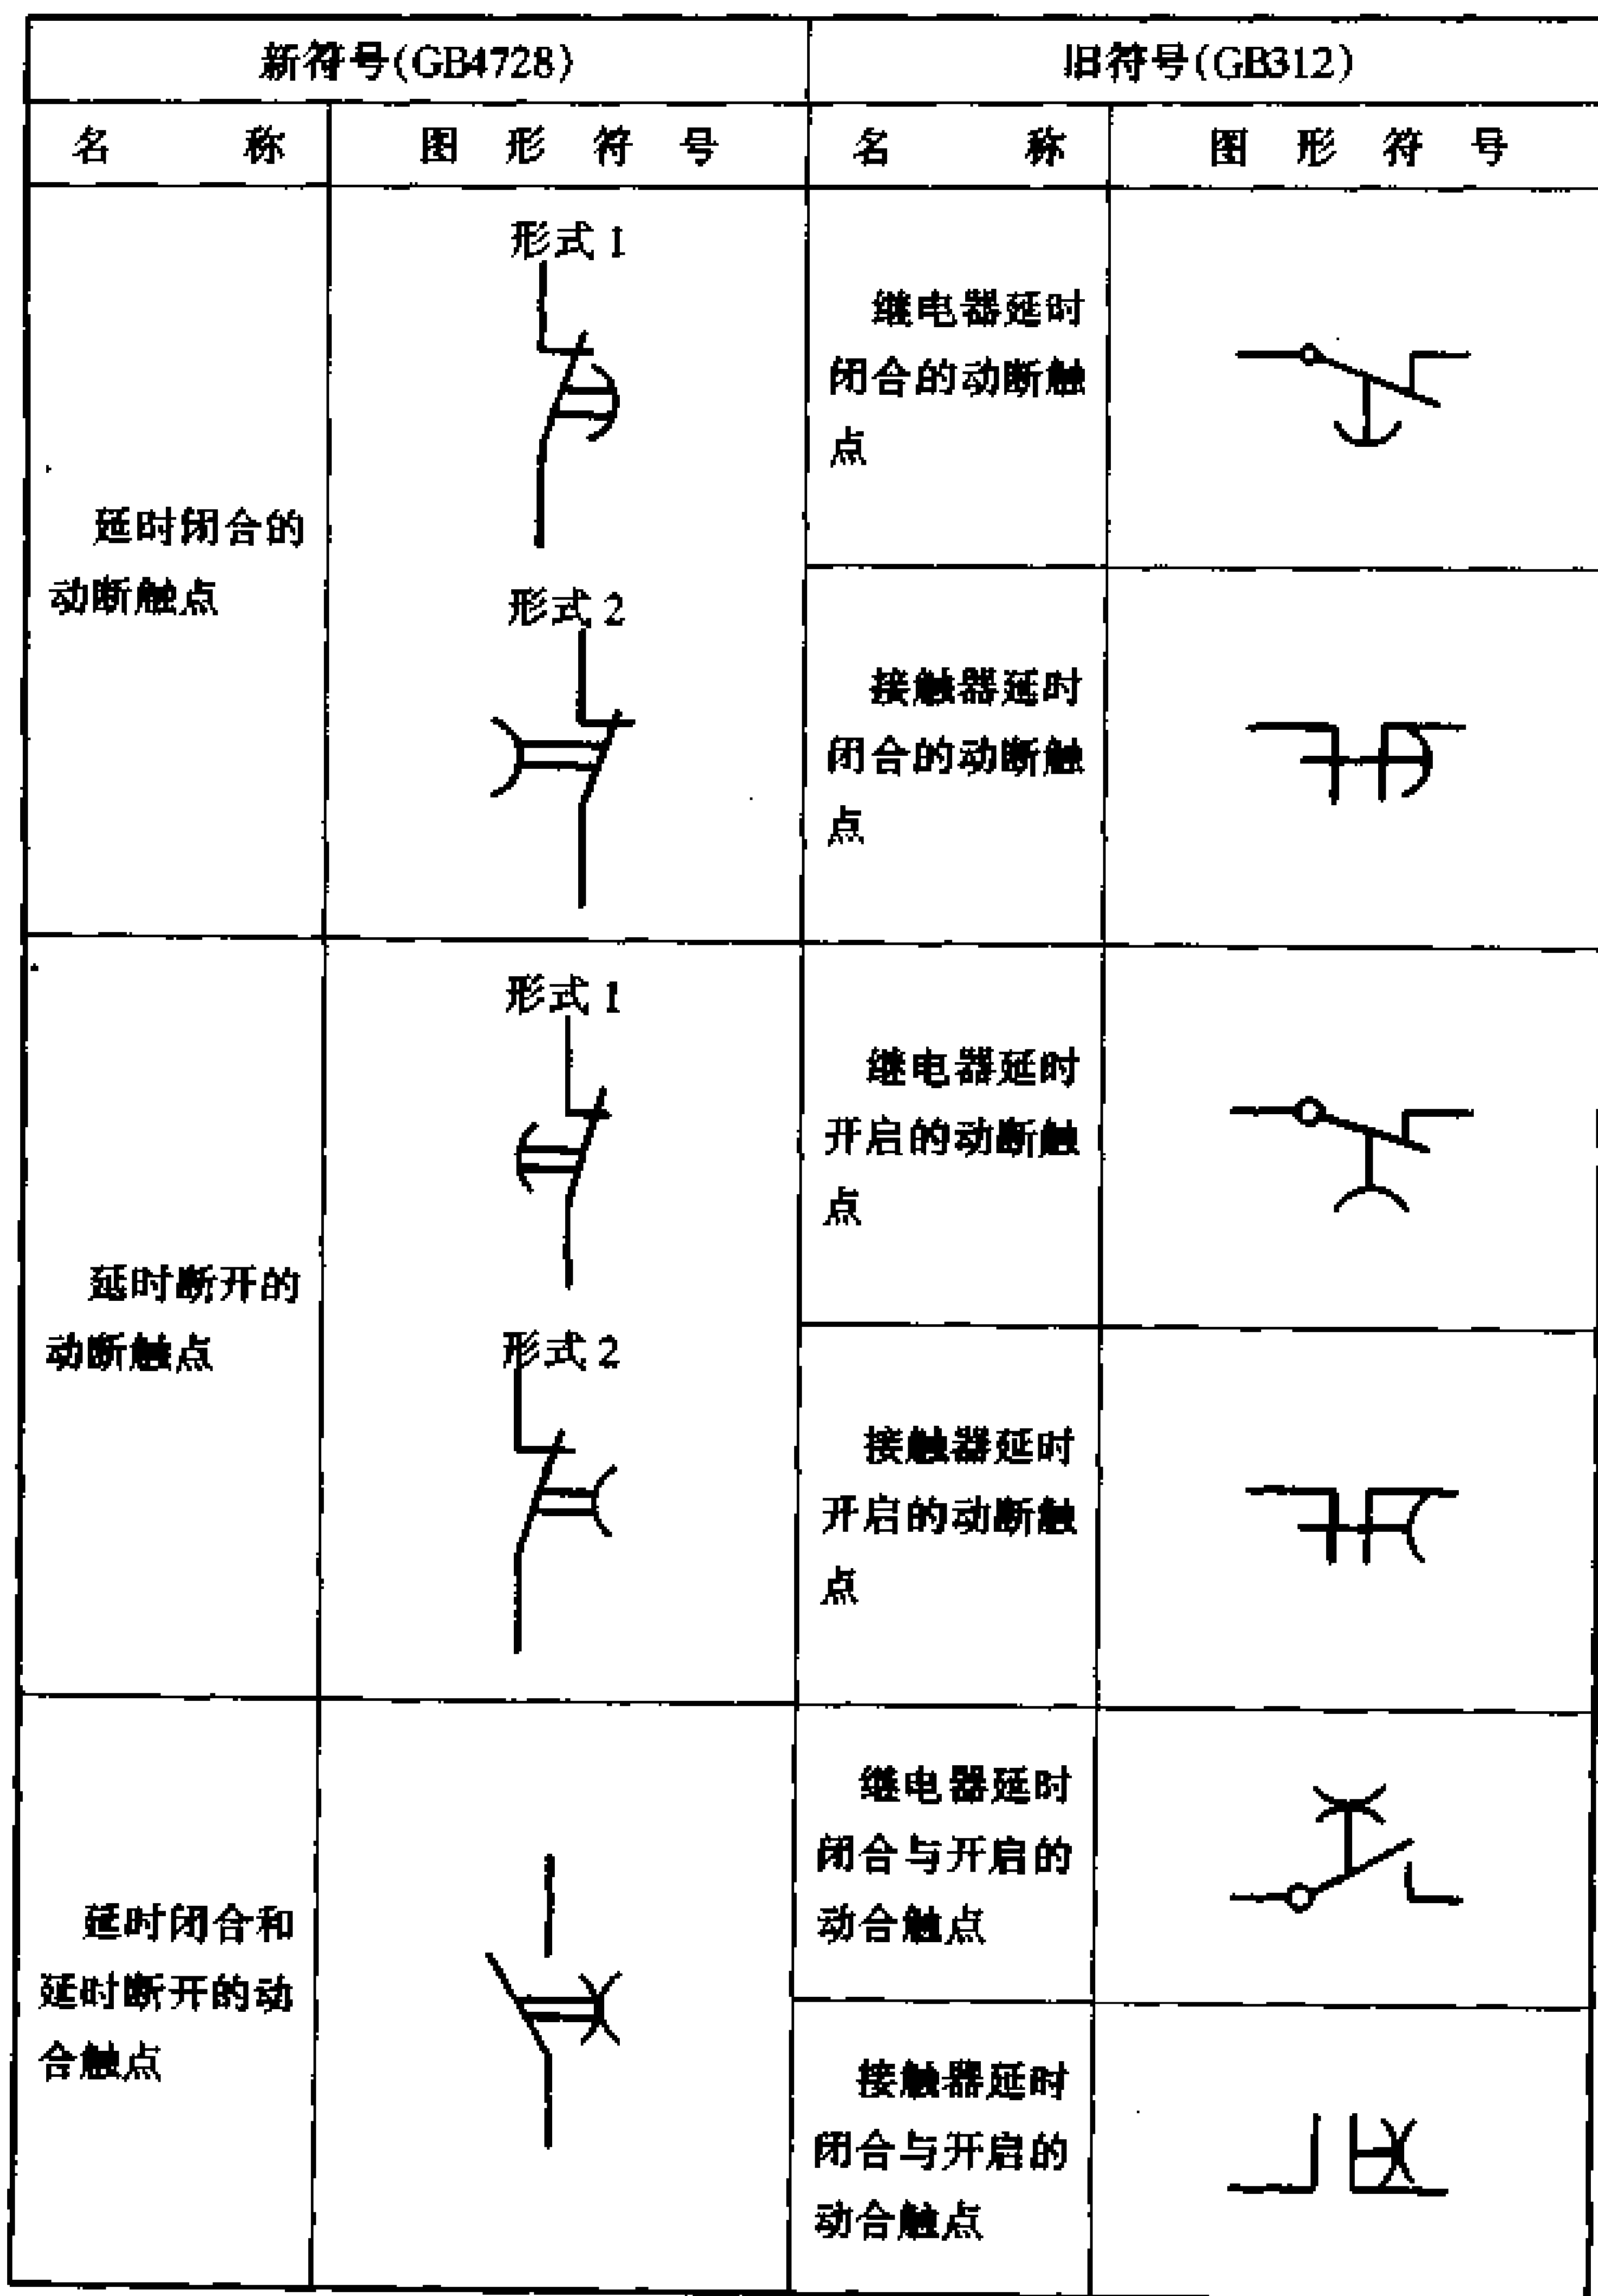 新符号(GB4728)
旧符号(GB312)
名 称
图 形 符 号
名 称
图 形 符 号
延时闭合的
动断触点
形式 1
形式 2
继电器延时
闭合的动断触
点
接触器延时
闭合的动断触
点
延时断开的
动断触点
形式 1
形式 2
继电器延时
开启的动断触
点
接触器延时
开启的动断触
点
延时闭合和
延时断开的动
合触点
继电器延时
闭合与开启的
动合触点
接触器延时
闭合与开启的
动合触点